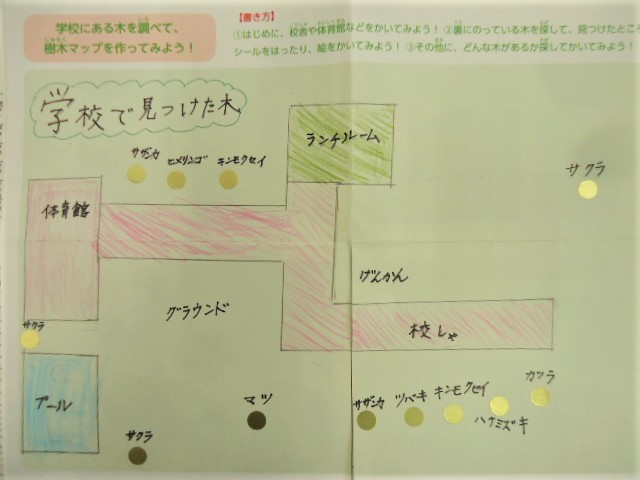 学校にある木を調べて、
樹木マップを作ってみよう！
【書き方】
①はじめに、校舎や体育館などをかいてみよう！ ②裏にのっている木を探して、見つけたところ
シールをはったり、絵をかいてみよう！ ③その他に、どんな木があるか探してかいてみよう！
学校で見つけた木
ランチルーム
サザンカ ヒメリンゴ キンモクセイ
サクラ
体育館
げんかん
グラウンド
校しゃ
サクラ
プール
マツ
サザンカ ツバキ キンモクセイ カツラ
ハナミズキ
サクラ